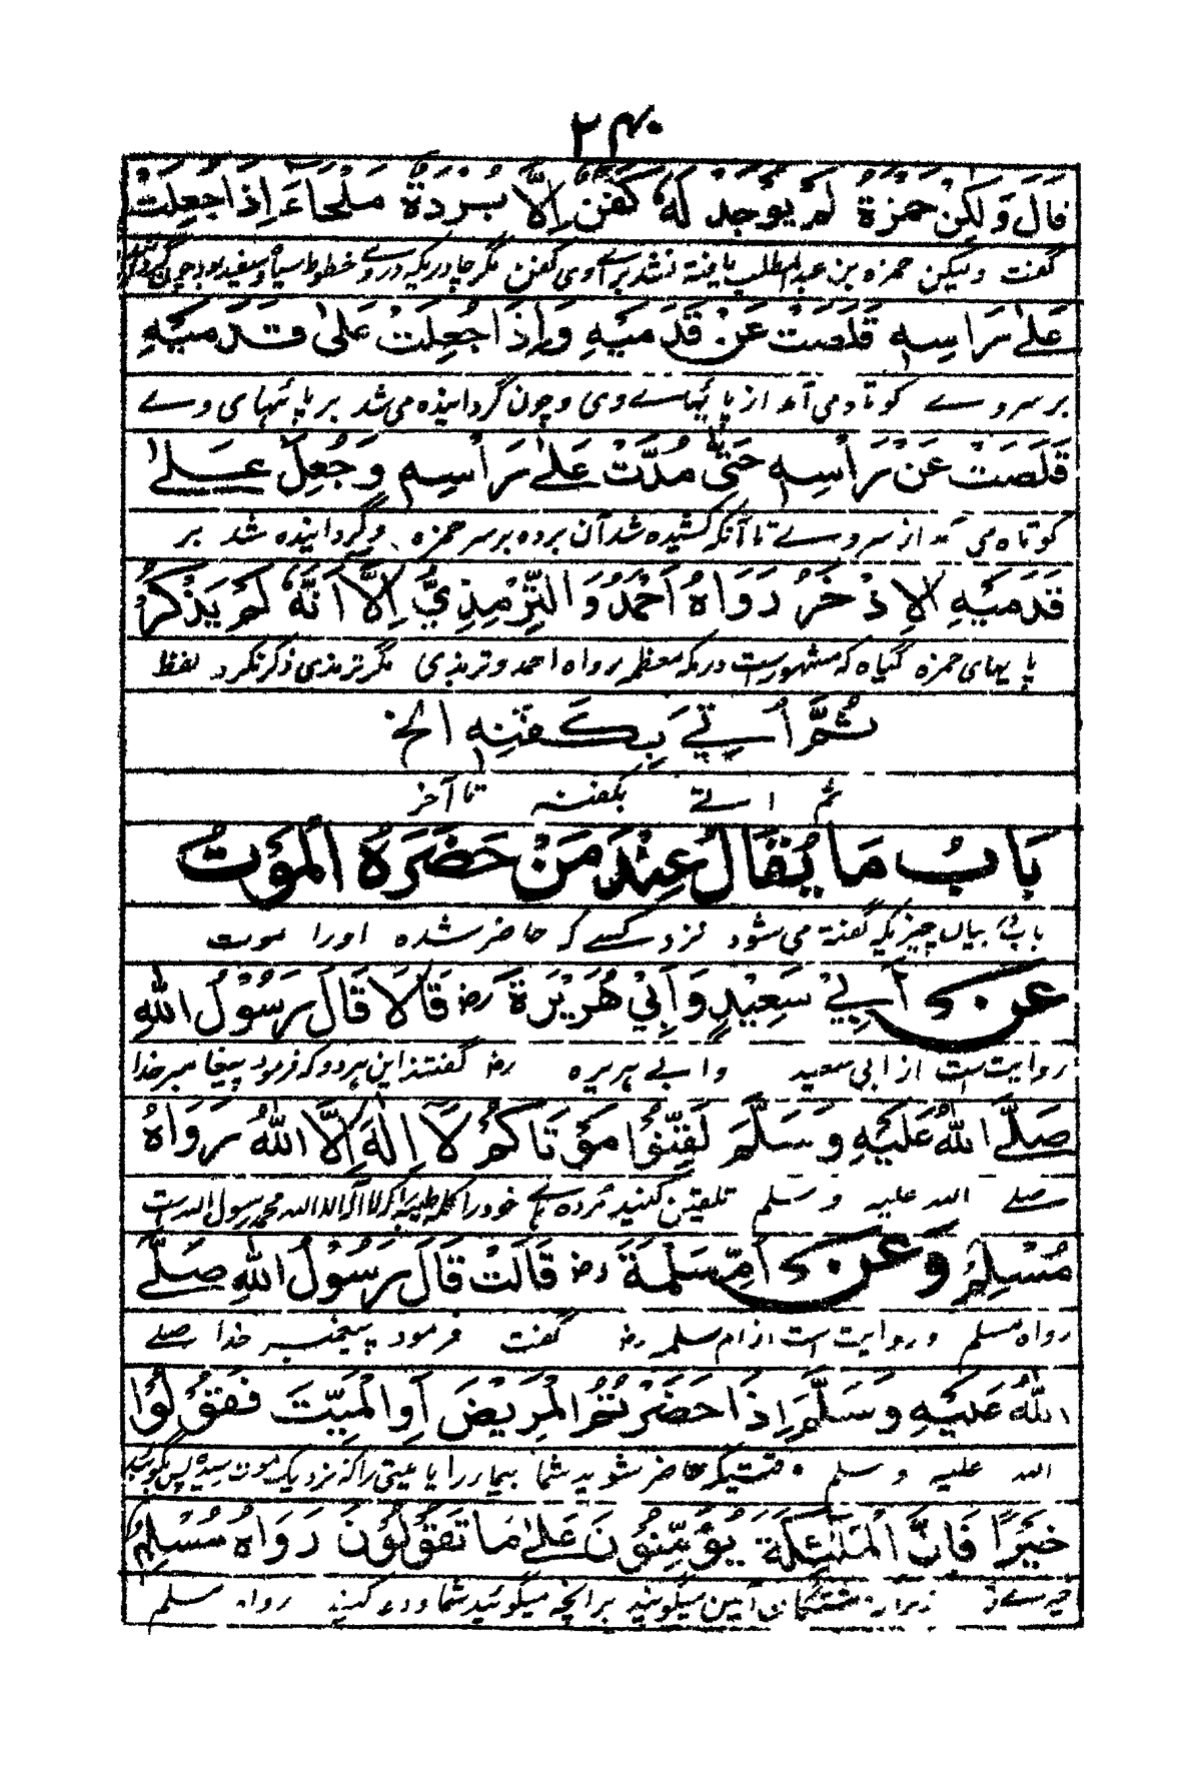 ۲۴۰
قَالَ وَلٰكِنْ حَمْزَةُ لَمْ يُوْجَدْ لَهٗ كَفَنٌ اِلَّا بُرْدَةٌ مَلْحَاءُ اِذَا جُعِلَتْ
گفت ولیکن حمزه بن عبدالمطلب یافته نشد برای وی کفن مگر چادریکه در وے خطوط سیاه و سفید بود چون
عَلٰى رَاْسِهٖ قَلَصَتْ عَنْ قَدَمَيْهِ وَاِذَا جُعِلَتْ عَلٰى قَدَمَيْهِ
بر سر وے کوتاه می آمد از پائهاے وی و چون گردانیده می شد بر پائهای وے
قَلَصَتْ عَنْ رَاْسِهٖ حَتّٰى مُدَّتْ عَلٰى رَاْسِهٖ وَجُعِلَ عَلٰى
کوتاه می از سر وے تا آنکه کشیده شد آن برده بر سر حمزه و گردانیده شد بر
قَدَمَيْهِ الْاِذْخَرُ رَوَاهُ اَحْمَدُ وَالتِّرْمِذِيُّ اِلَّا اَنَّهٗ لَمْ يَذْكُرْ
پایهای حمزه گیاه که مشهور ست در مکه معظمه رواه احمد و ترمذی مگر ترمذی ذکر نکرد لفظ
ثُمَّ اُتِيَ بِكَفَنِهٖ الخ
ثم اتے بکفنه تا آخر
بَابُ مَا يُقَالُ عِنْدَ مَنْ حَضَرَهُ الْمَوْتُ
باب بیان چیزیکه گفته می شود نزد کسے که حاضر شده اورا موت
عَنْ اَبِيْ سَعِيْدٍ وَاَبِيْ هُرَيْرَةَ رض قَالَا قَالَ رَسُوْلُ اللهِ
روایت ست از ابی سعید و ابے هریره رض گفتند این هر دو که فرمود پیغامبر خدا
صَلَّى اللهُ عَلَيْهِ وَسَلَّمَ لَقِّنُوْا مَوْتَاكُمْ لَا اِلٰهَ اِلَّا اللهُ رَوَاهُ
صلے الله علیه و سلم تلقین کنید مرده هاے خود را کلمه طیبه که لا اله الا الله محمد رسول الله ست
مُسْلِمٌ وَعَنْ اُمِّ سَلَمَةَ رض قَالَتْ قَالَ رَسُوْلُ اللهِ صَلَّى
رواه مسلم و روایت ست از ام سلمه رض گفت فرمود پیغمبر خدا صلے
اللهُ عَلَيْهِ وَسَلَّمَ اِذَا حَضَرْتُمُ الْمَرِيْضَ اَوِ الْمَيِّتَ فَقُوْلُوْا
الله علیه و سلم وقتیکه حاضر شوید شما بیمار را یا میتی را که نزدیک موت رسیده پس بگوئید
خَيْرًا فَاِنَّ الْمَلٰئِكَةَ يُؤَمِّنُوْنَ عَلٰى مَا تَقُوْلُوْنَ رَوَاهُ مُسْلِمٌ
آمین میگویند بر آنچه میگوئید شما رواه مسلم